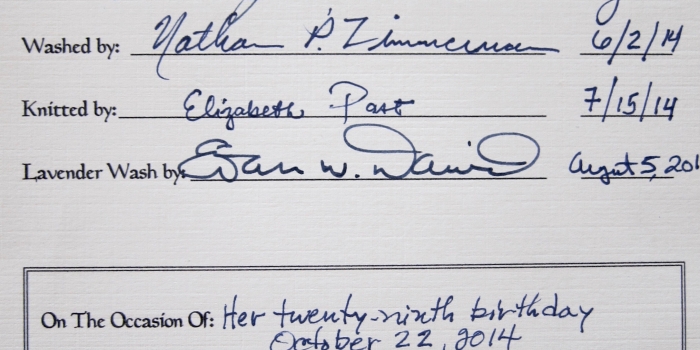 Washed by: Nathan P. Zimmerman 6/2/14
Knitted by: Elizabeth Past 7/15/14
Lavender Wash by: Evan W. David August 5, 201
On The Occasion Of: Her twenty-ninth birthday
October 22, 2014